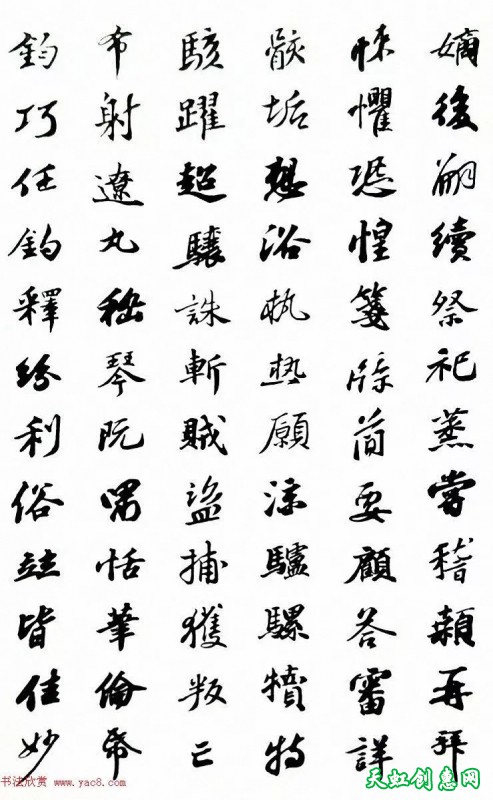 嫡後嗣續祭祀蒸嘗稽顙再拜
悚懼恐惶箋牒簡要顧答審詳
骸垢想浴執熱願涼驢騾犢特
駭躍超驤誅斬賊盜捕獲叛亡
布射遼丸嵇琴阮嘯恬筆倫帋
鈞巧任釣釋紛利俗竝皆佳妙
书法欣赏 www.yac8.com
天虹创惠网